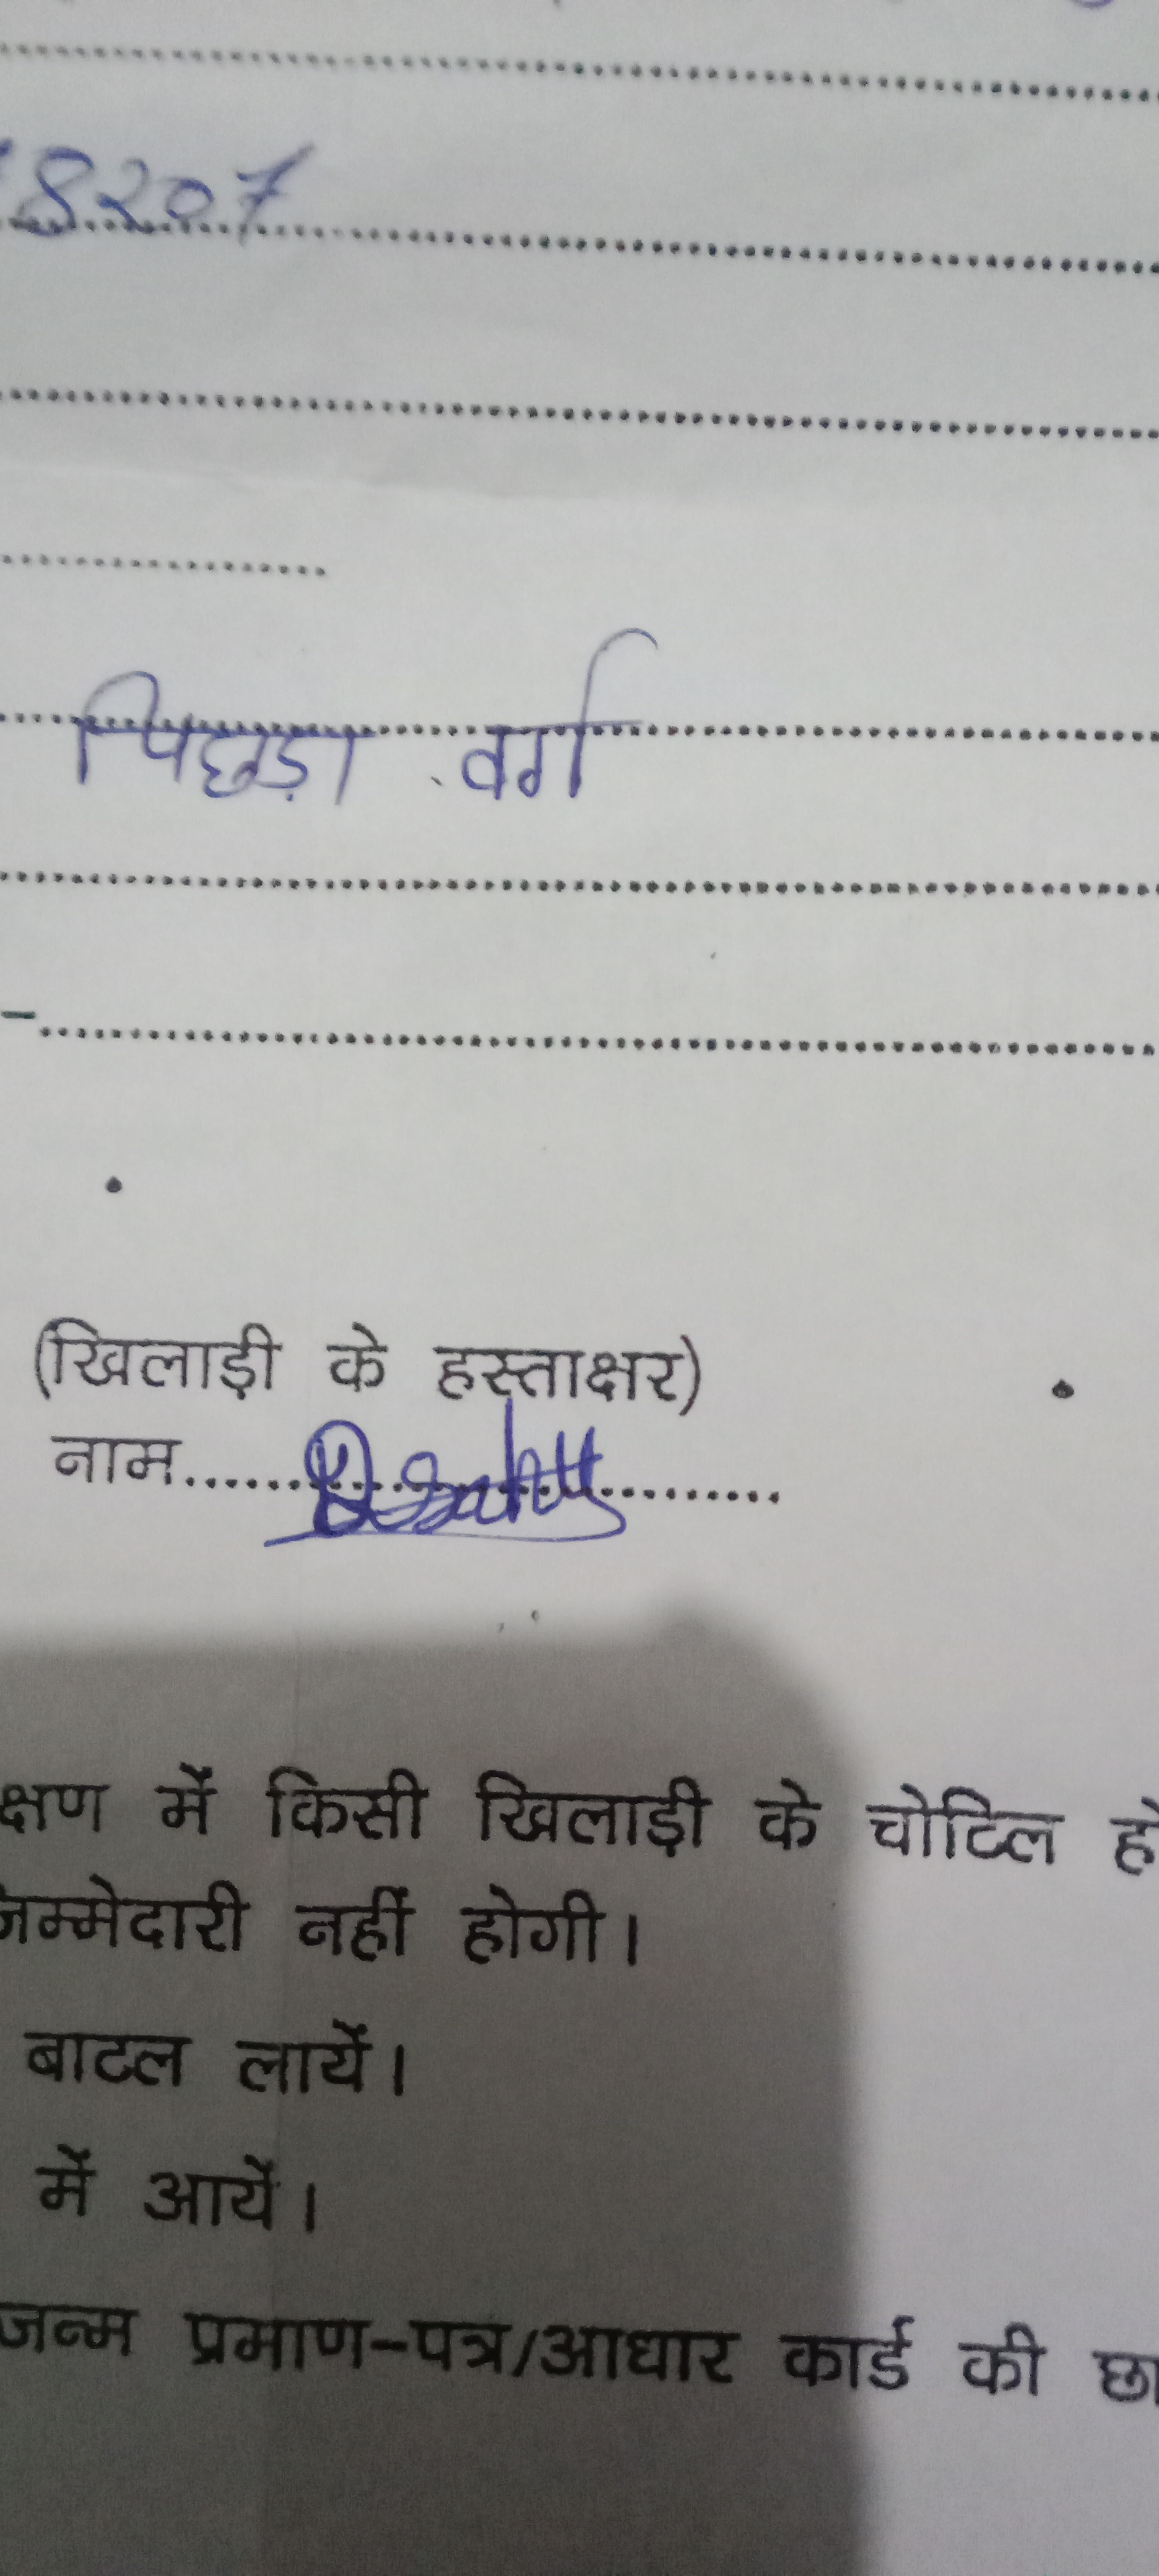 8207
पिछड़ा वर्ग
(खिलाड़ी के हस्ताक्षर)
नाम
क्षण में किसी खिलाड़ी के चोटिल हो
जिम्मेदारी नहीं होगी।
बाटल लायें।
में आयें।
जन्म प्रमाण-पत्र/आधार कार्ड की छा